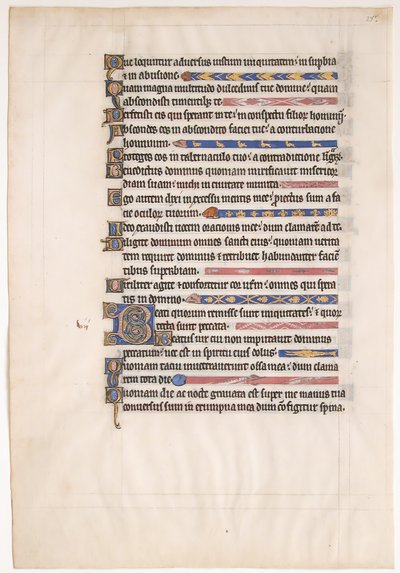 Que loquntur adversus iustum iniquitatem: in supbia
& in abusione.
Quam magna multitudo dulcedinis tue domine: quam
abscondisti timentib; te.
Perfecisti eis qui sperant in te: in conspectu filior hominū.
Abscondes eos in abscondito faciei tue: a conturbacione
hominum.
Proteges eos in tabernaculo tuo: a contradictione
Benedictus dominus quoniam mirificavit misericor
diam suam: michi in civitate munita.
Ego autem dixi in excessu mentis mee: piectus sum a fa
cie oculor tuorum.
Ideo exaudisti vocem oracionis mee: dum clamarē ad te.
Diligite dominum omnes sancti eius: quoniam verita
tem requiret dominus & retribuet habundanter faciē
tibus supbiam.
Viriliter agite & confortetur cor vrm: omnes qui spera
tis in domino.
Beati quorum remisse sunt iniquitates: & quor
tecta sunt peccata.
Beatus vir cui non imputavit dominus
peccatum: nec est in spiritu eius dolus.
Quoniam tacui inveteraverunt ossa mea: dum clama
rem tota die.
Quoniam die ac nocte gravata est super me manus tua
conversus sum in erumpna mea dum cōfigitur spina.